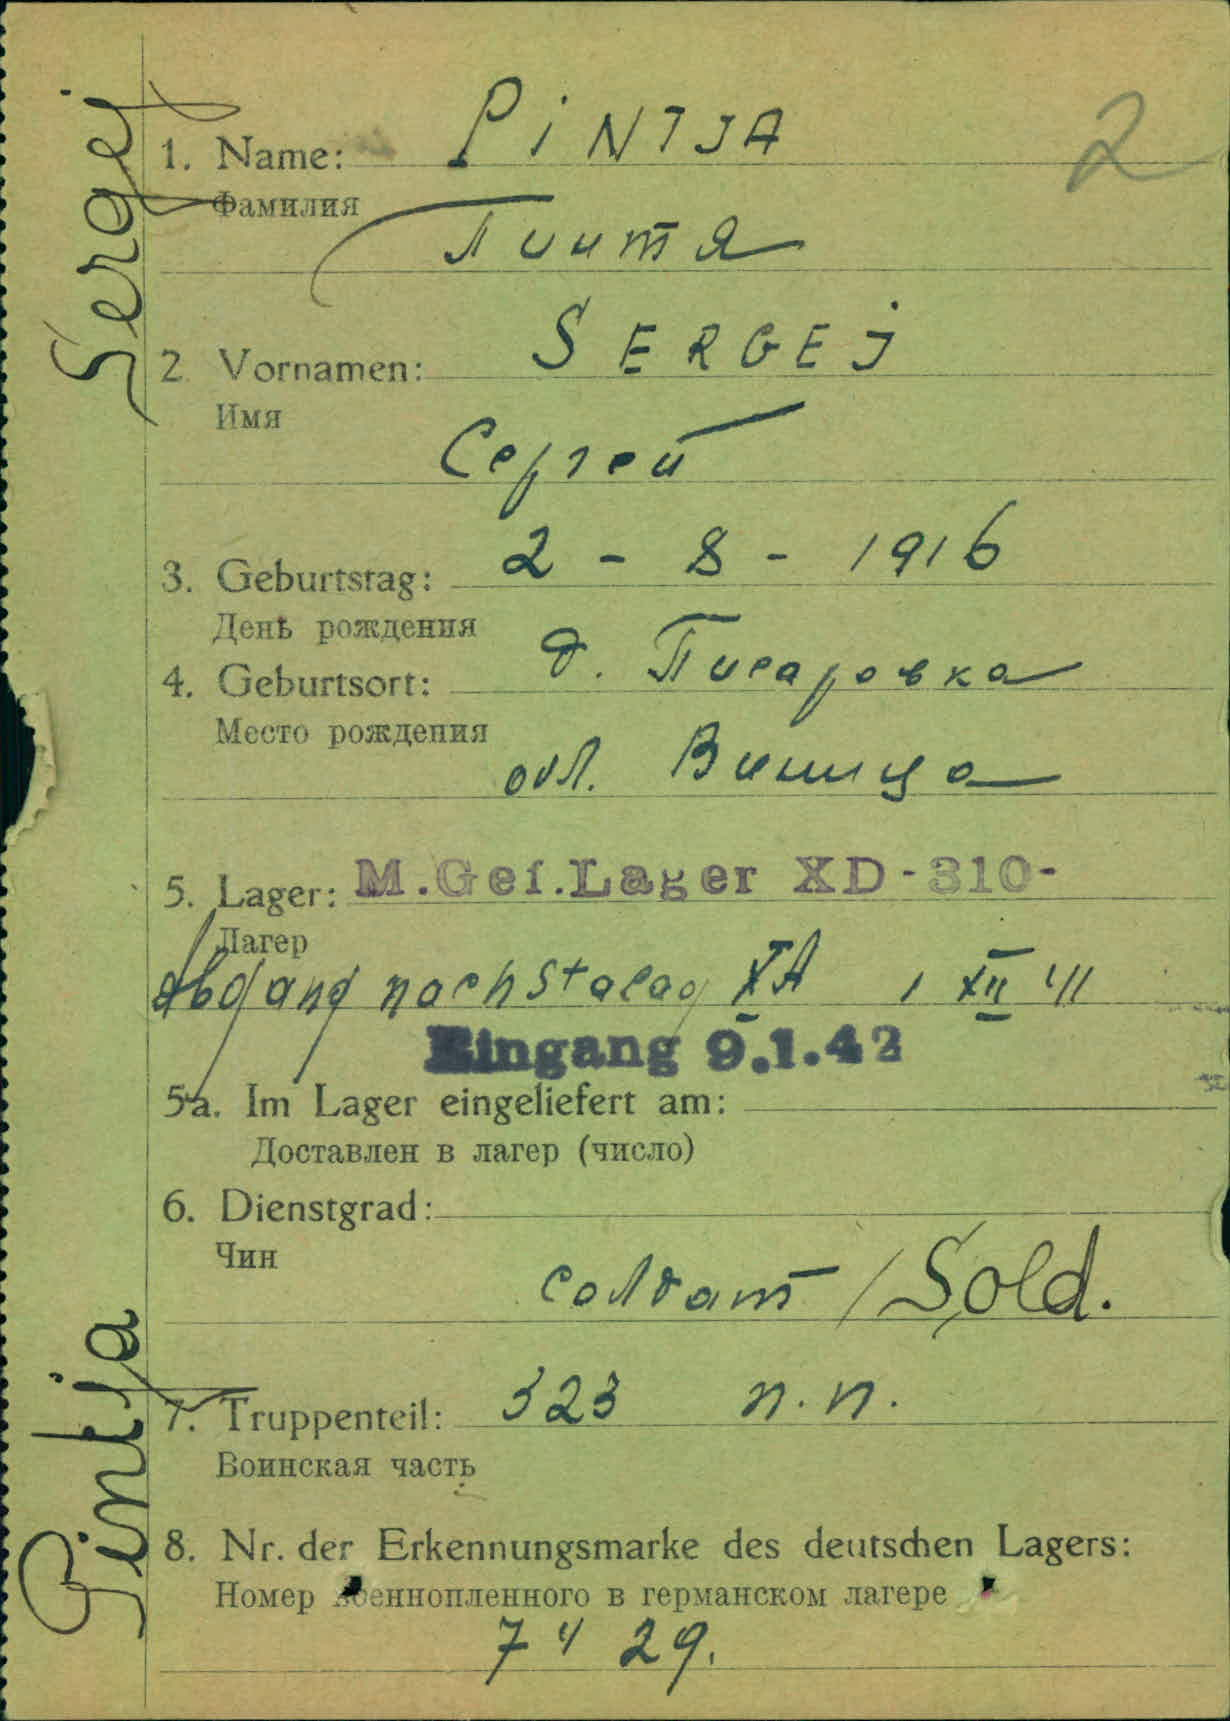 Sergej
1. Name: PiNTJA 2
Фамилия
Пинтя
2. Vornamen: SERGEJ
Имя
Сергей
3. Geburtstag: 2 - 8 - 1916
День рождения
4. Geburtsort: д. Писаровка
Место рождения
обл. Виница
5. Lager: M.Gef.Lager XD-310-
Лагер
abgang nach Stalag XA 1 XII 41
Eingang 9.1.42
5a. Im Lager eingeliefert am:
Доставлен в лагер (число)
6. Dienstgrad:
Чин
солдат / Sold.
7. Truppenteil: 323 п.п.
Воинская часть
8. Nr. der Erkennungsmarke des deutschen Lagers:
Номер военнопленного в германском лагере
7429.
Pintja